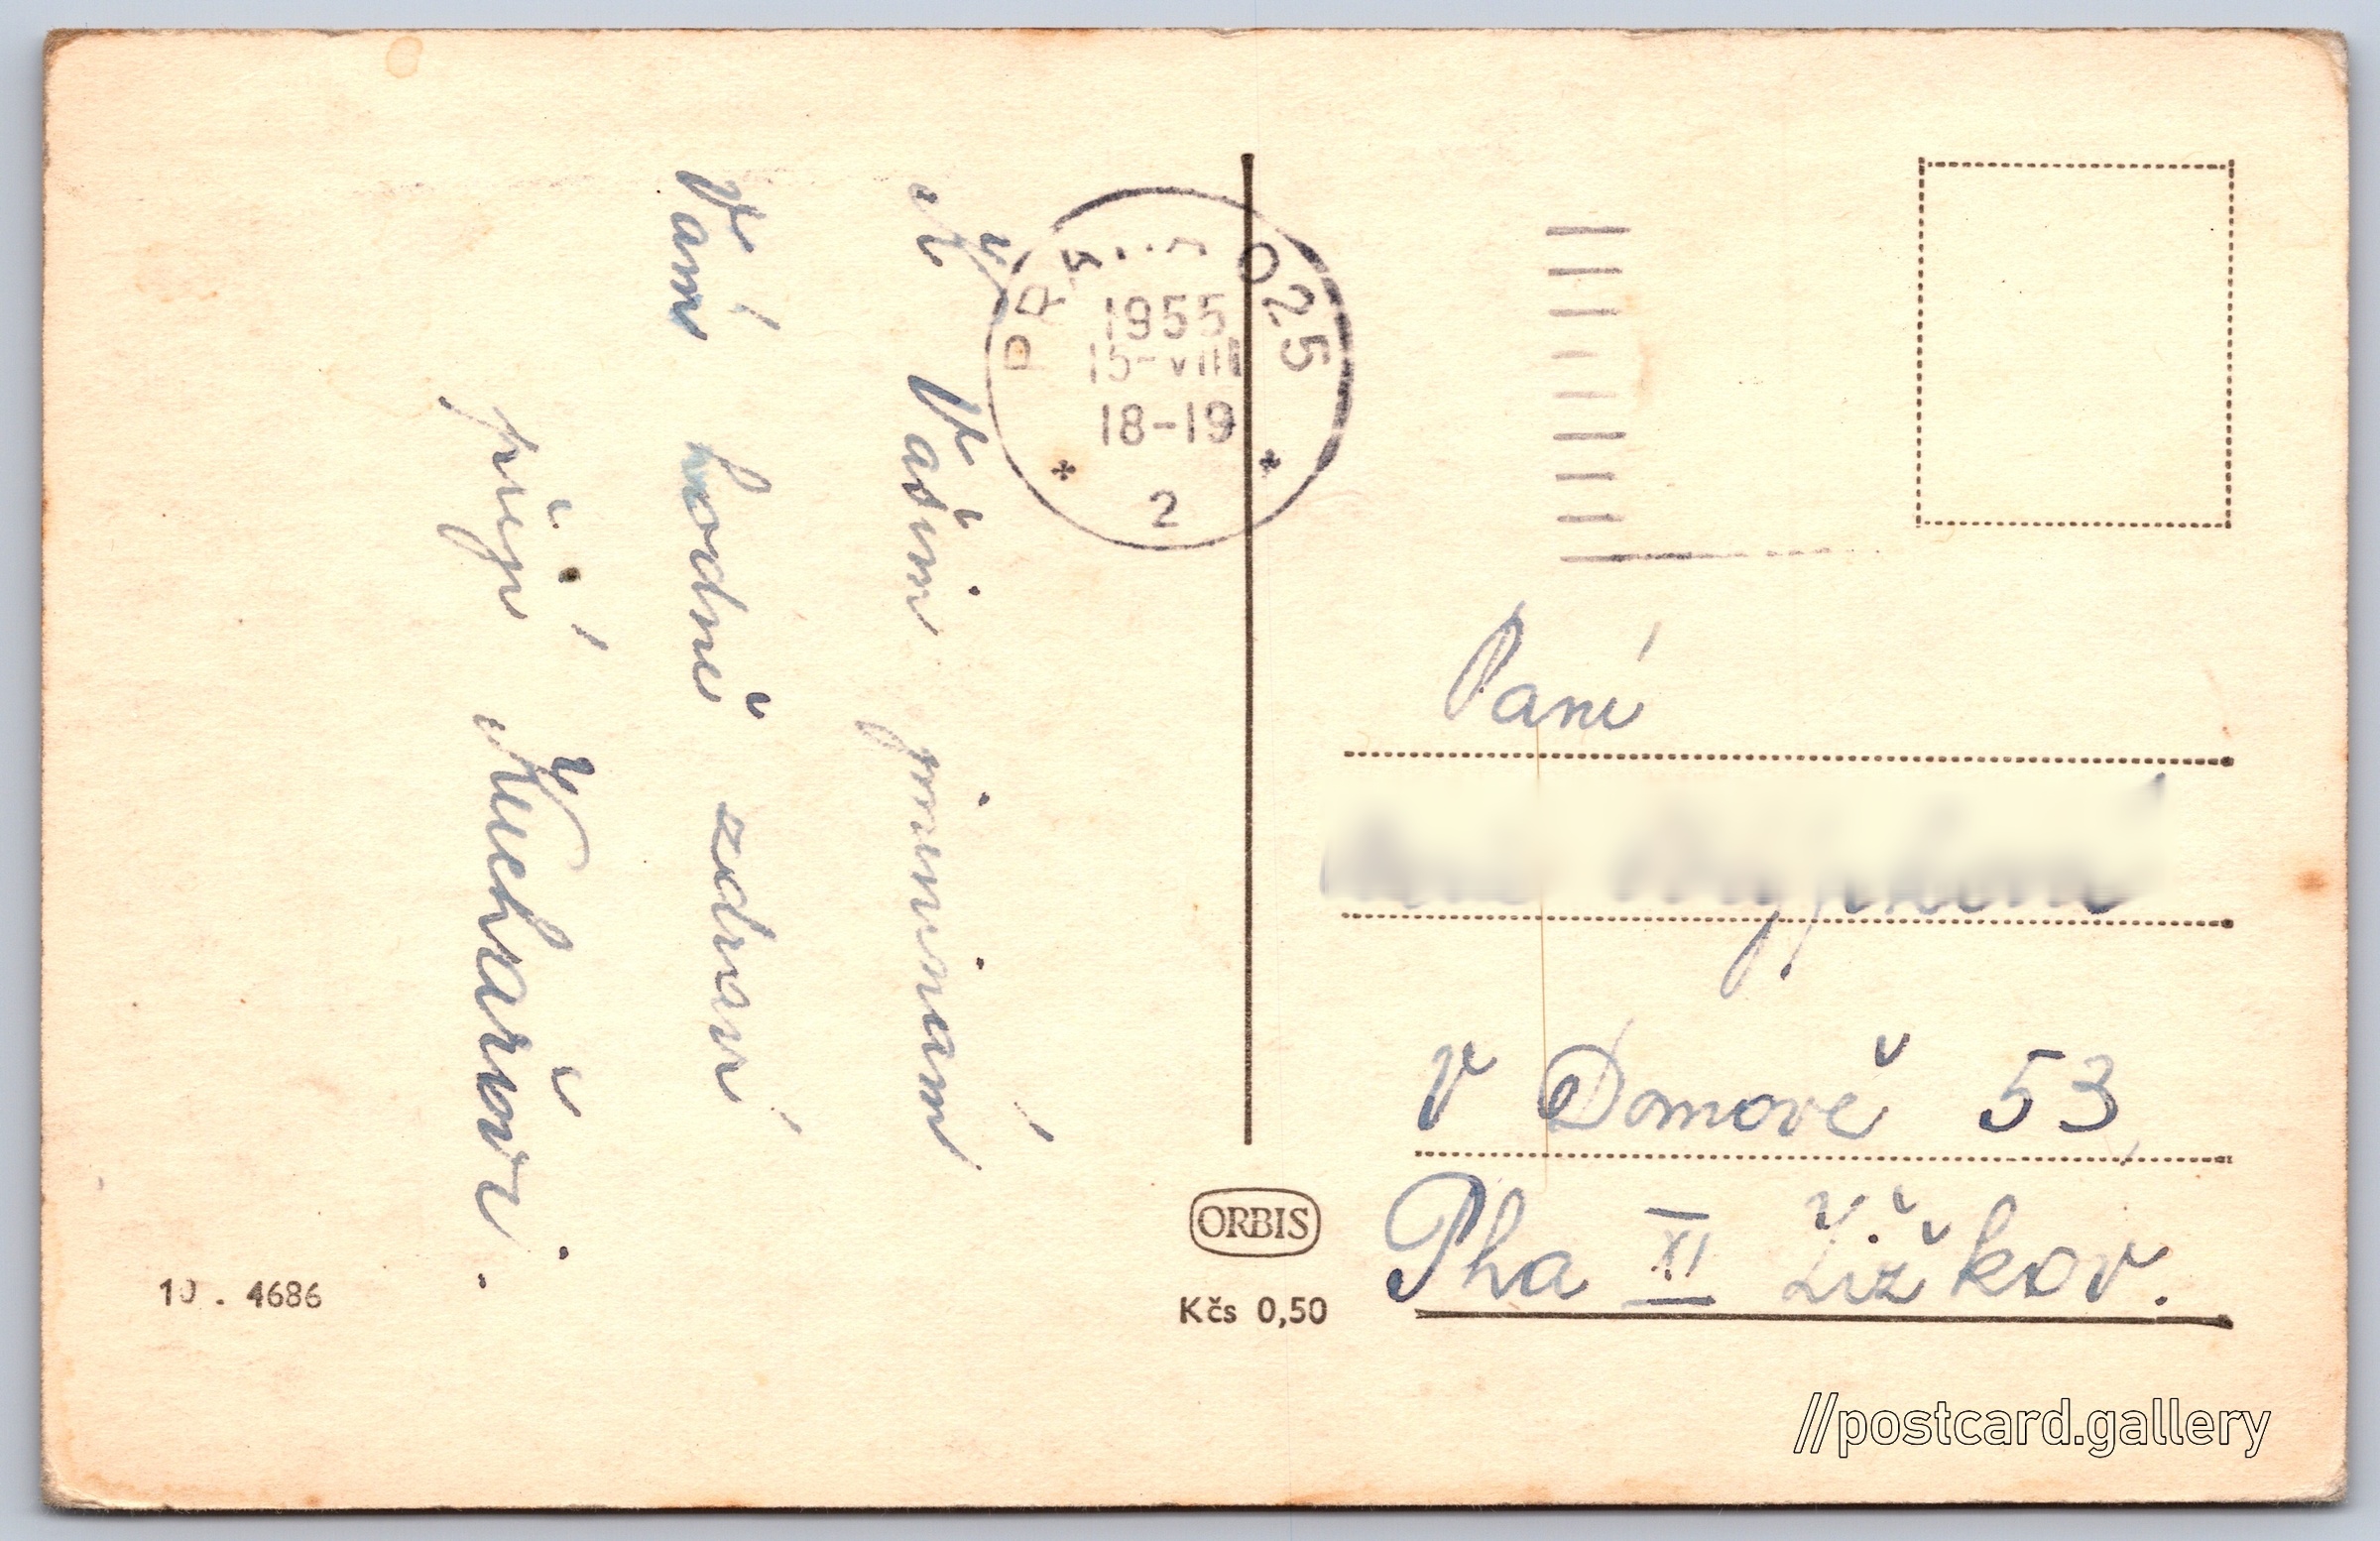 K Vašim jmeninám
Vám hodně zdraví
přejí Kuchařovi.
PRAHA 025
1955
15-VIII
18-19
2
Paní
V Domově 53,
Pha XI Žižkov.
ORBIS
Kčs 0,50
10. 4686
//postcard.gallery